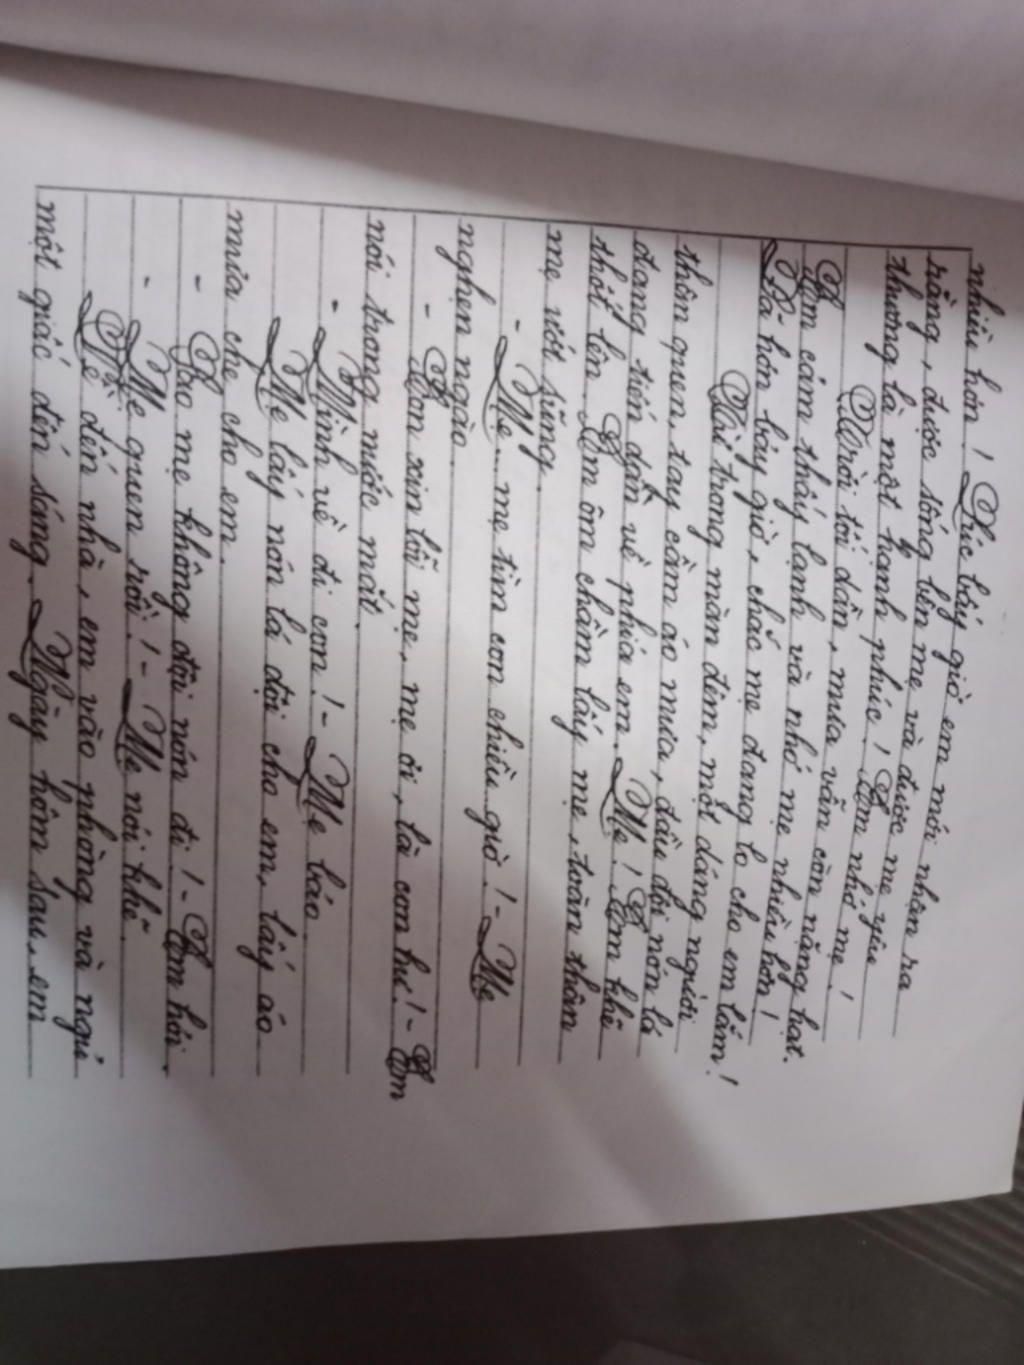 nhiều hơn! Lúc bấy giờ em mới nhận ra
rằng, được sống bên mẹ và được mẹ yêu
thương là một hạnh phúc! Em nhớ mẹ!
Trời tối dần, mưa vẫn còn nặng hạt.
Em cảm thấy lạnh và nhớ mẹ nhiều hơn!
Đã hơn bảy giờ, chắc mẹ đang lo cho em lắm!
Rồi trong màn đêm, một dáng người
thân quen, tay cầm áo mưa, đầu đội nón lá
đang tiến dần về phía em. Mẹ! Em khẽ
thốt lên. Em ôm chầm lấy mẹ, toàn thân
mẹ ướt sũng.
- Mẹ... mẹ tìm con chiều giờ! - Mẹ
nghẹn ngào.
- Con xin lỗi mẹ, mẹ ơi, là con hư! - Em
nói trong nước mắt.
- Mình về đi con! - Mẹ bảo.
Mẹ lấy nón lá đội cho em, lấy áo
mưa che cho em.
- Sao mẹ không đội nón đi! - Em hỏi.
- Mẹ quen rồi! - Mẹ nói khẽ.
Về đến nhà, em vào phòng và ngủ
một giấc đến sáng. Ngày hôm sau, em